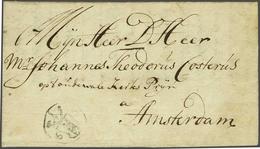 Mijn Heer D Heer
Mr Johannes Theodorus Costerus
op d'oudewale
a
Amsterdam